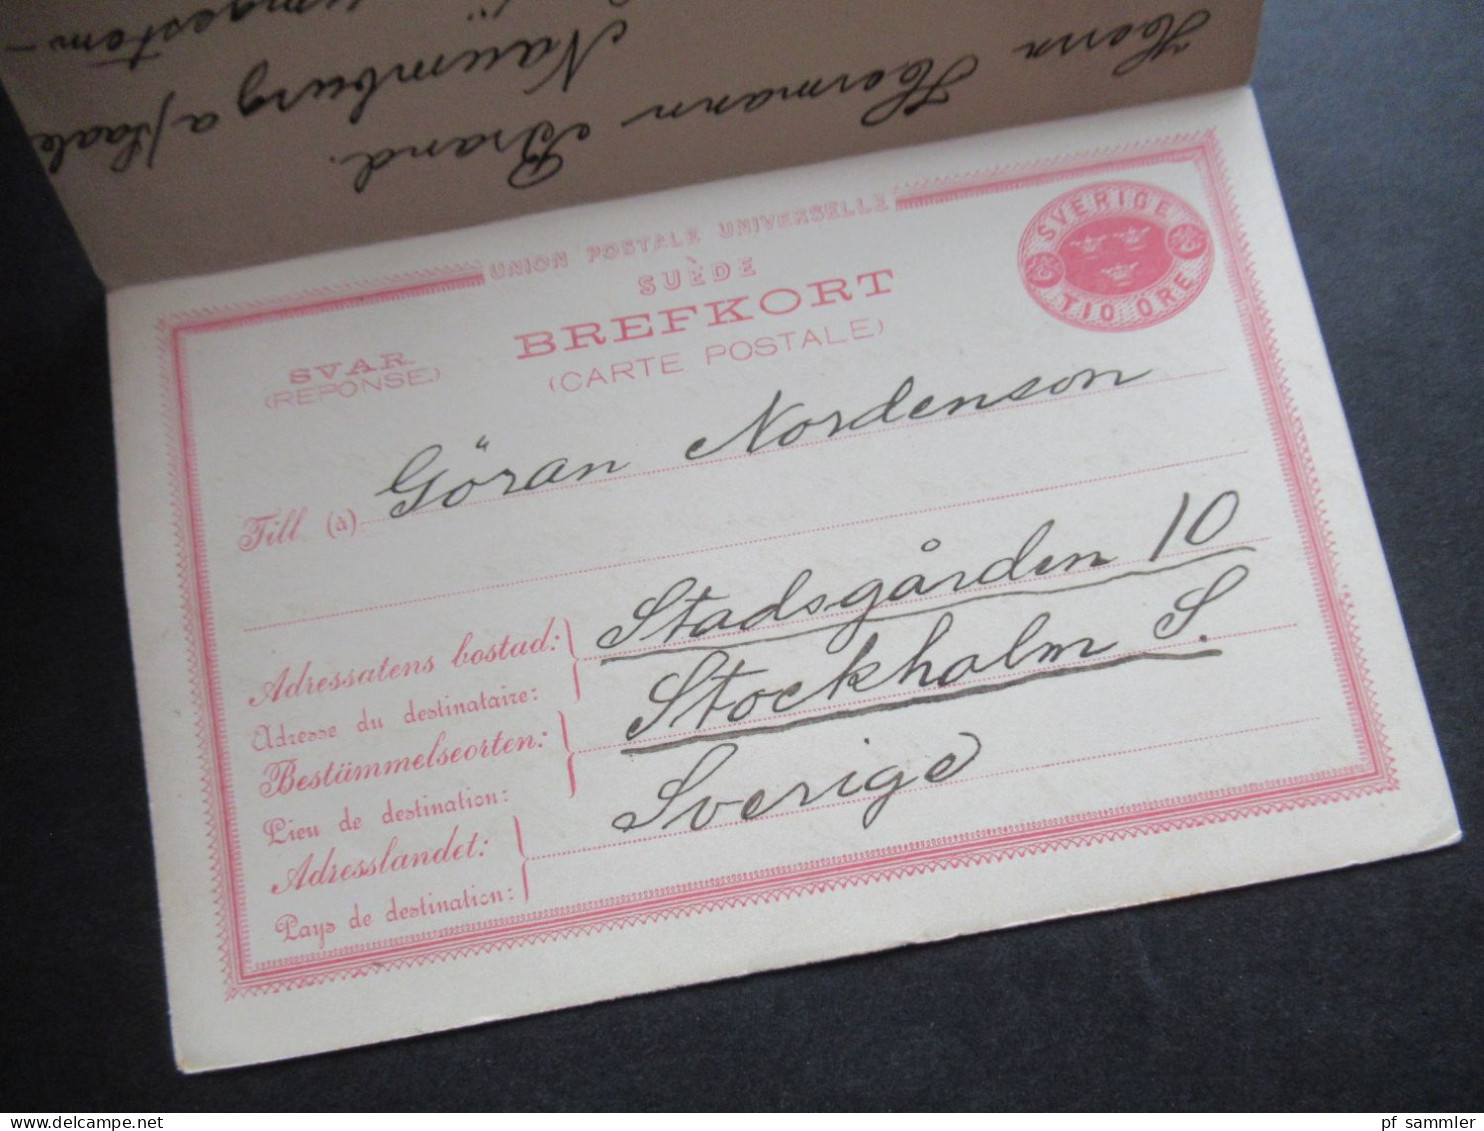 Herrn Hermann Brand.
Naumburg a/Saale
UNION POSTALE UNIVERSELLE
SUÈDE
SVERIGE
TIO ÖRE
BREFKORT
(CARTE POSTALE)
SVAR
(RÉPONSE)
Till (à) Göran Nordenson
Adressatens bostad: Stadsgården 10
Adresse du destinataire:
Bestämmelseorten: Stockholm S.
Lieu de destination:
Adresslandet: Sverige
Pays de destination:
pf sammler